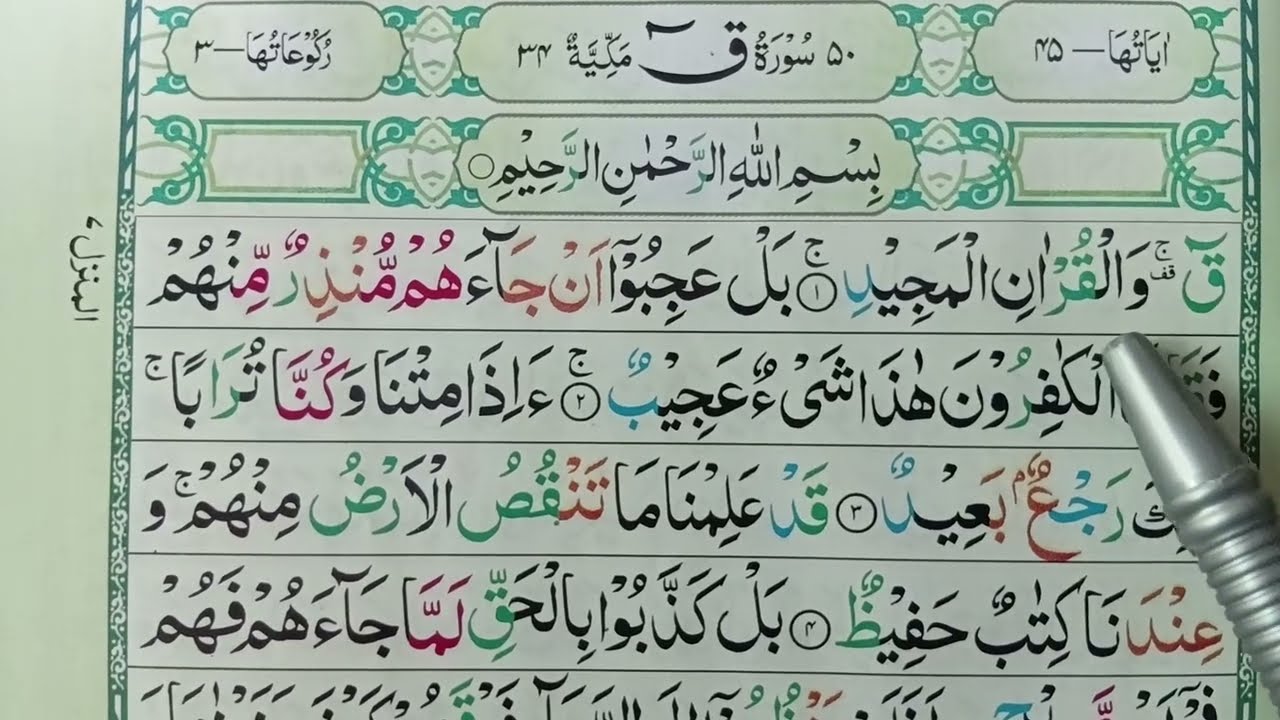 اٰيَاتُهَا—۴۵
۵۰ سُوْرَةُ قٓ مَكِّيَّةٌ ۳۴
رُكُوْعَاتُهَا—۳
بِسْمِ اللّٰهِ الرَّحْمٰنِ الرَّحِيْمِ
قٓ ۚقف وَالْقُرْاٰنِ الْمَجِيْدِ ۚ﴿۱﴾ بَلْ عَجِبُوْۤا اَنْ جَآءَهُمْ مُّنْذِرٌ مِّنْهُمْ
الْكٰفِرُوْنَ هٰذَا شَیْءٌ عَجِيْبٌ ۚ﴿۲﴾ ءَاِذَا مِتْنَا وَكُنَّا تُرَابًا ۚ
رَجْعٌۢ بَعِيْدٌ ﴿۳﴾ قَدْ عَلِمْنَا مَا تَنْقُصُ الْاَرْضُ مِنْهُمْ ۚ وَ
عِنْدَنَا كِتٰبٌ حَفِيْظٌ ﴿۴﴾ بَلْ كَذَّبُوْا بِالْحَقِّ لَمَّا جَآءَهُمْ فَهُمْ
المنزل ۷